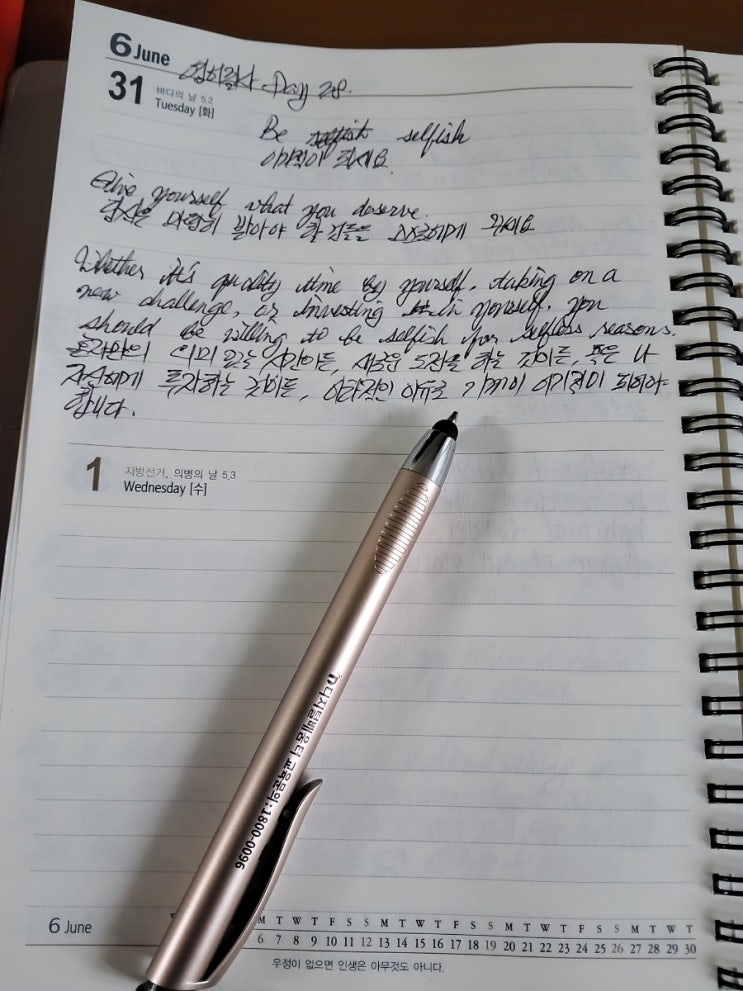 6 June
영어필사 Day 28.
31 바다의 날 5.2
Tuesday [화]
Be selfish selfish
이기적이 되세요.
Give yourself what you deserve.
당신은 마땅히 받아야 할 것들을 스스로에게 주세요
Whether it's quality time by yourself, taking on a
new challenge, or investing in yourself, you
should be willing to be selfish for selfless reasons.
혼자만의 의미 있는 시간이든, 새로운 도전을 하는 것이든, 혹은 나
자신에게 투자하는 것이든, 이타적인 이유로 기꺼이 이기적이 되어야
합니다.
1 지방선거, 의병의 날 5.3
Wednesday [수]
디지털배움터 교육문의:1800-0096
6 June
M T W T F S S M T W T F S S M T W T F S S M T W T
6 7 8 9 10 11 12 13 14 15 16 17 18 19 20 21 22 23 24 25 26 27 28 29 30
우정이 없으면 인생은 아무것도 아니다.